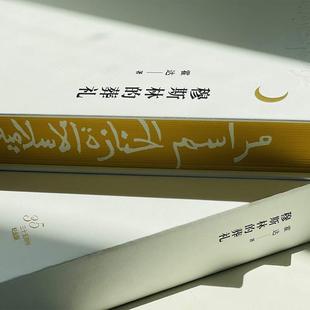 穆斯林的葬礼
霍达 著
مراسم الجنازة الإسلامية
35
穆斯林的葬礼
霍达 著